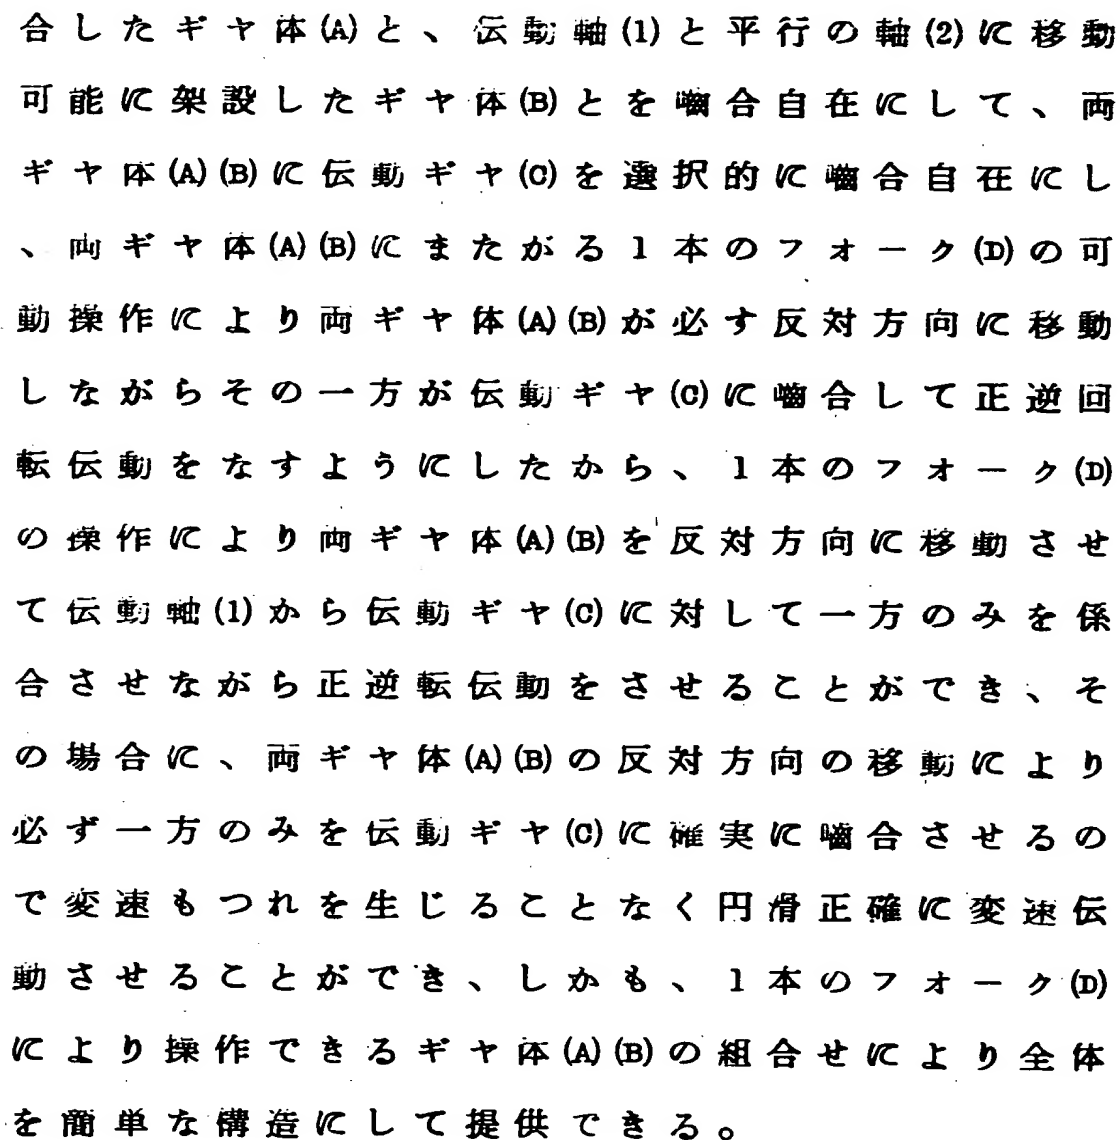 合したギヤ体(A)と、伝動軸(1)と平行の軸(2)に移動
可能に架設したギヤ体(B)とを噛合自在にして、両
ギヤ体(A)(B)に伝動ギヤ(C)を選択的に噛合自在にし
、両ギヤ体(A)(B)にまたがる1本のフォーク(D)の可
動操作により両ギヤ体(A)(B)が必す反対方向に移動
しながらその一方が伝動ギヤ(C)に噛合して正逆回
転伝動をなすようにしたから、1本のフォーク(D)
の操作により両ギヤ体(A)(B)を反対方向に移動させ
て伝動軸(1)から伝動ギヤ(C)に対して一方のみを係
合させながら正逆転伝動をさせることができ、そ
の場合に、両ギヤ体(A)(B)の反対方向の移動により
必ず一方のみを伝動ギヤ(C)に確実に噛合させるの
で変速もつれを生じることなく円滑正確に変速伝
動させることができ、しかも、1本のフォーク(D)
により操作できるギヤ体(A)(B)の組合せにより全体
を簡単な構造にして提供できる。